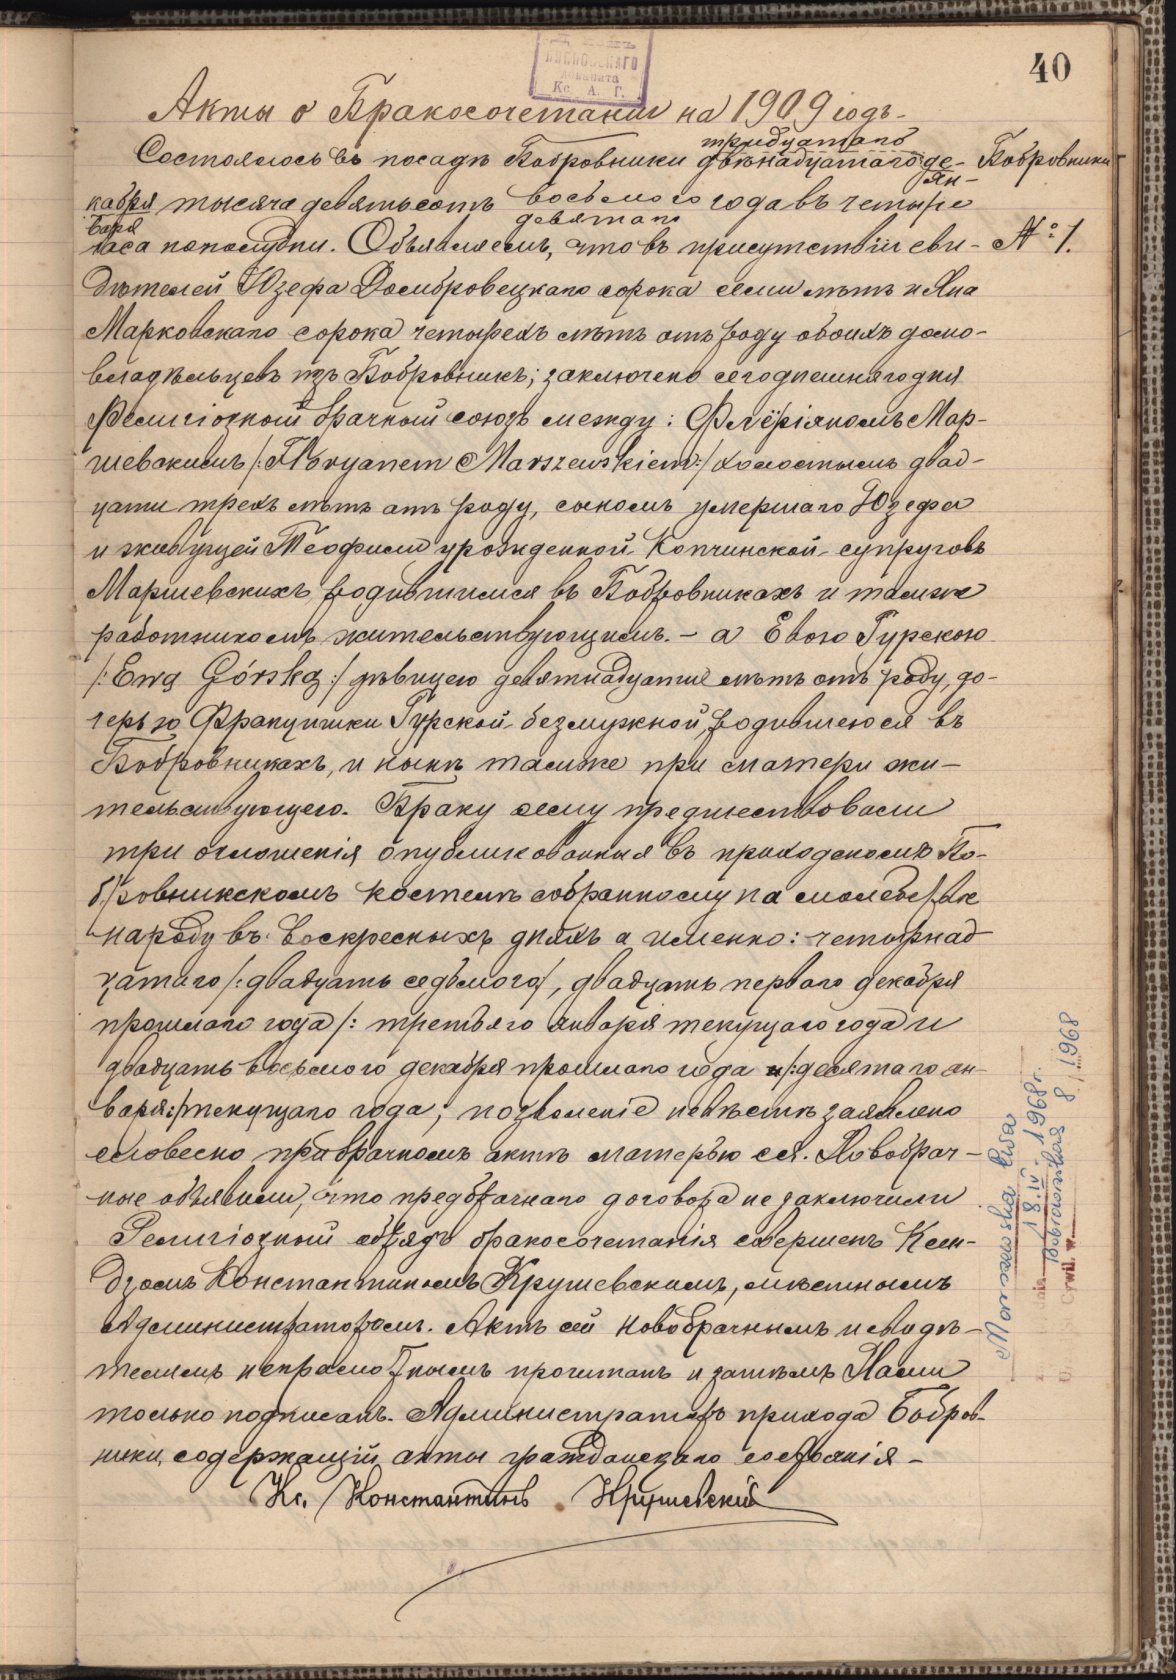 40
Акты о Бракосочетании на 1909 годъ.
Состоялось въ посадѣ Бобровники двѣнадцатаго де-
тридцатаго
Ян-
Бобровники
кабря тысяча девятьсотъ восьмого года въ четыре
варя
девятаго
часа пополудни. Объявляемъ, что въ присутствіи сви-
№ 1.
дѣтелей Юзефа Домбровецкаго сорока семи лѣтъ и Яна
Марковскаго сорока четырехъ лѣтъ отъ роду обоихъ домо-
владѣльцевъ изъ Бобровникъ; заключено сегоднешнягодня
Религіозный брачный союзъ между: Флёріяномъ Мар-
шевскимъ /:Floryanem Marszewskiem:/ холостымъ двад-
цати трехъ лѣтъ отъ роду, сыномъ умершаго Юзефа
и живущей Теофили урожденной Копчинской супруговъ
Маршевскихъ родившимся въ Бобровникахъ и тамже
работникомъ жительствующимъ. – а Евою Гурскою
/:Ewą Górską:/ дѣвицею девятнадцатые лѣтъ отъ роду, до-
черью Францишки Гурской безмужной, родившеюся въ
Бобровникахъ, и нынѣ тамже при матери жи-
тельствующею. Браку сему предшествовали
три оглошенія опубликованныя въ приходскомъ Бо-
бровникскомъ костелѣ собранному на молебствіе
народу въ Воскресныхъ дняхъ а именно: четырнад
цатаго /:двадцать седьмого/, двадцать перваго декабря
прошлаго года /: третьяго января текущаго года и
двадцать восьмого декабря прошлаго года /:десятаго ян-
варя:/ текущаго года; позволеніе невѣстѣ заявлено
словесно при брачномъ актѣ матерью ея. Новобрач-
ные объявили, что предбрачнаго договора не заключили
Религіозный обрядъ бракосочетанія совершенъ Ксен-
дзомъ Константиномъ Крушевскимъ, мѣстнымъ
Администраторомъ. Актъ сей новобрачнымъ и свидѣ-
телямъ неграмотнымъ прочитанъ и затѣмъ Нами
только подписанъ. Администраторъ прихода Бобров-
ники, содержащій акты гражданскаго состоянія –
Кс. Константинъ Крушевскій
Marszewska Ewa
18.IV.1968r.
8/1968